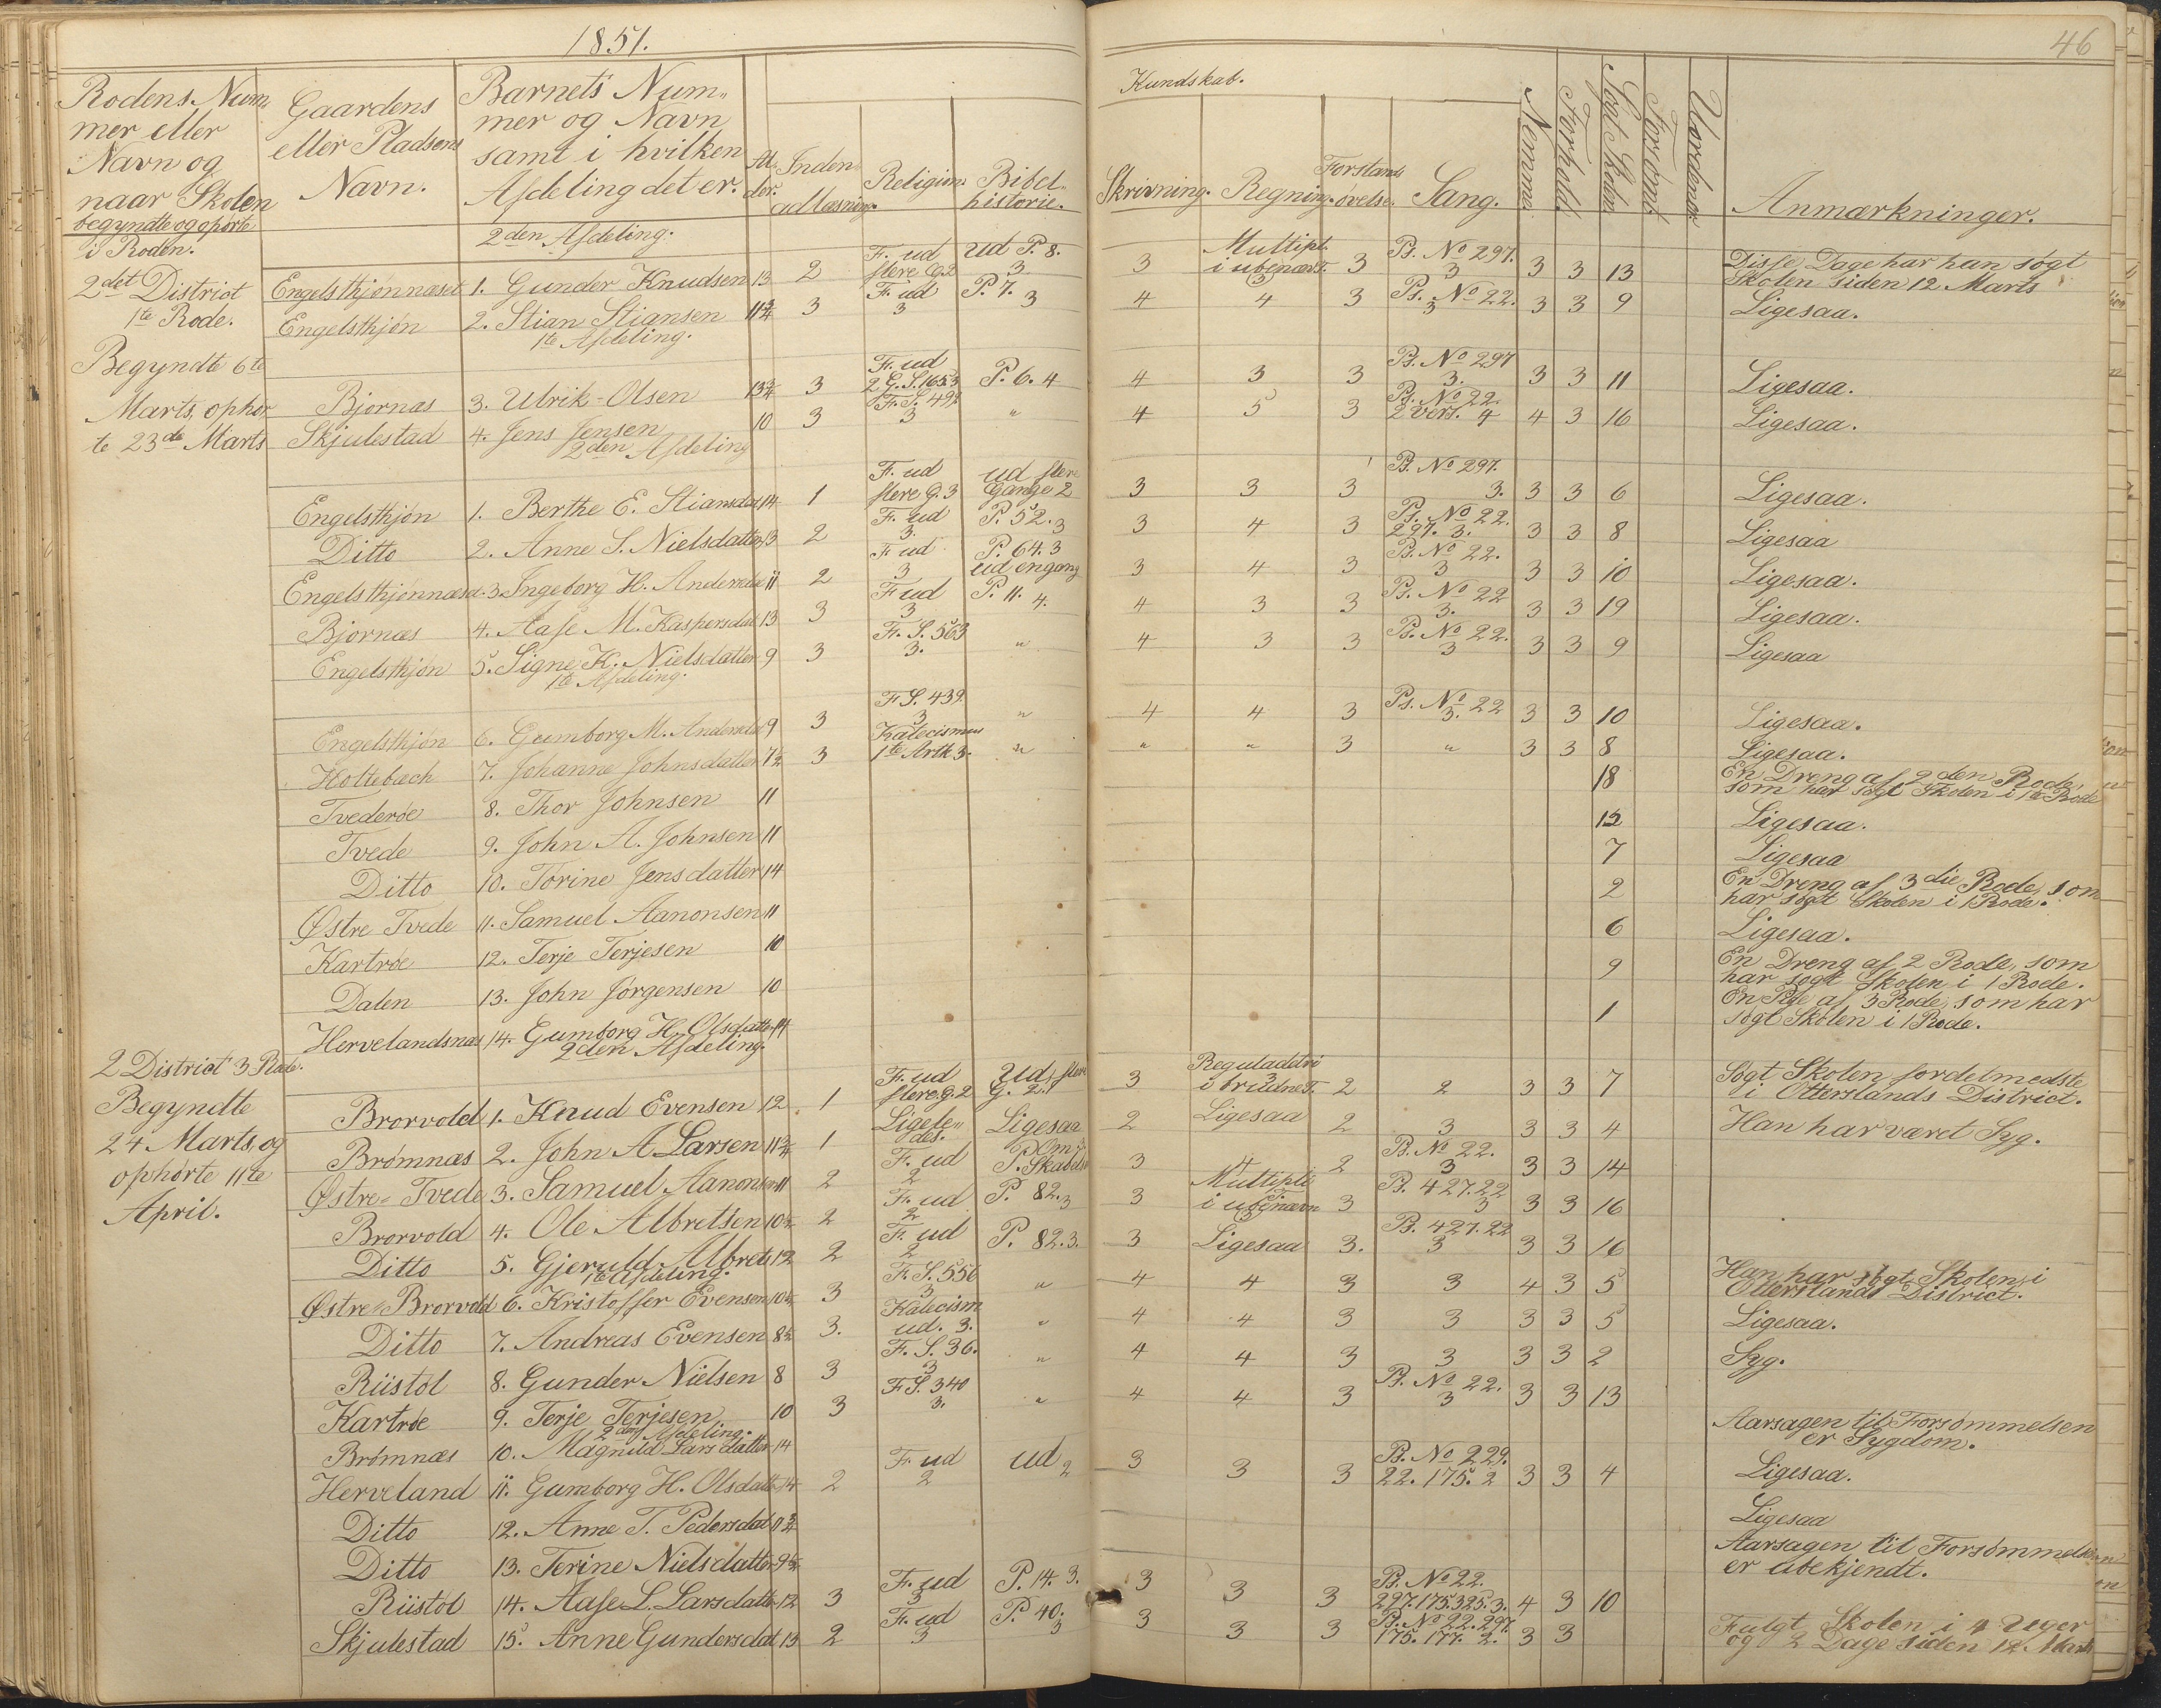 1851.
46
Rodens Num-
mer eller
Navn og
naar Skolen
begyndte og ophørte
i Roden.
Gaardens
eller Pladsens
Navn.
Barnets Num-
mer og Navn
samt i hvilken
Afdeling det er.
Al-
der.
Inden-
adlæsning.
Religion.
Bibel-
historie.
Kundskab.
Skrivning.
Regning.
Forstands
øvelse.
Sang.
Nemme.
Forhold.
Søgt Skolen
Forsømt.
Anmærkninger.
2det District
1te Rode.
Begyndte 6te
Marts, ophør
te 23de Marts
2den Afdeling.
Engelsthjønnæset 1. Gunder Knudsen 13 2 F. ud flere G. 2 ud P. 8. 3 3 Multipl. i ubenævt. 3 3 Ps. No 297. 3 3 3 13 Disse Dage har han søgt
Skolen siden 12 Marts
Engelsthjøn 2. Stian Stiansen 11 3/4 3 F. ud 3 P. 7. 3 4 4 3 Ps. No 22. 3 3 3 9 Ligesaa.
1te Afdeling.
Bjørnæs 3. Ulrik Olsen 13 3/4 3 F. ud 2 G. S. 165. 3 P. 6. 4 4 3 3 Ps. No 297 3. 3 3 11 Ligesaa.
Skjulestad 4. Jens Jensen 10 3 F. S. 492 3 " 4 5 3 Ps. No 22. 2 vers. 4 4 3 16 Ligesaa.
2den Afdeling
Engelsthjøn 1. Berthe E. Stiansdat 14 1 F. ud flere G. 3 ud flere Gange 2 3 3 3 Ps. No 297. 3. 3 3 6 Ligesaa.
Ditto 2. Anne S. Nielsdatter 13 2 F. ud 3. P. 52. 3 3 4 3 Ps. No 22. 297. 3. 3 3 8 Ligesaa
Engelsthjønnæset 3. Ingeborg H. Andersdat 11 2 F ud 3 P. 64. 3 ud engang 3 4 3 Ps. No 22. 3 3 3 10 Ligesaa.
Bjørnæs 4. Aase M. Kaspersdat 13 3 F ud 3 P. 11. 4. 4 3 3 Ps. No 22 3. 3 3 19 Ligesaa.
Engelsthjøn 5. Signe K. Nielsdatter 9 3 F. S. 563 3. " 4 3 3 Ps. No 22. 3 3 3 9 Ligesaa
1te Afdeling.
Engelsthjøn 6. Gumborg M. Andersdat 9 3 F S. 439. 3 " 4 4 3 Ps. No 22 3. 3 3 10 Ligesaa.
Holtebæch 7. Johanne Johnsdatter 7 1/2 3 Katecismus 1te Artk 3. " " " 3 " 3 3 8 Ligesaa.
Tvederøe 8. Thor Johnsen 11 18 En Dreng af 2den Rode,
som har søgt Skolen i 1te Rode
Tvede 9. John A. Johnsen 11 12 Ligesaa.
Ditto 10. Torine Jensdatter 14 7 Ligesaa
Østre Tvede 11. Samuel Aanonsen 11 2 En Dreng af 3die Rode, som
har søgt Skolen i 1 Rode.
Kartrøe 12. Terje Terjesen 10 6 Ligesaa.
Dalen 13. John Jørgensen 10 9 En Dreng af 2 Rode, som
har søgt Skolen i 1 Rode.
Hervelandsnæs 14. Gumborg H. Olsdatter 14 1 En Pige af 3 Rode, som har
søgt Skolen i 1 Rode.
2 District 3 Rode.
Begyndte
24 Marts, og
ophørte 11te
April.
2den Afdeling.
Brorvold 1. Knud Evensen 12 1 F. ud flere G. 2 Ud, flere G. 2. 3 Reguladetri i brudne T. 3 2 2 3 3 7 Søgt Skolen fordetmedste
i Otterslands District.
Brømnæs 2. John A Larsen 11 3/4 1 Ligele- des. Ligesaa 2 Ligesaa 2 3 3 3 4 Han har været Syg.
Østre Tvede 3. Samuel Aanonsen 11 2 F. ud 2 Om P. Skabels 3 4 2 Ps. No 22. 3 3 3 14
Brorvold 4. Ole Albretsen 10 1/2 2 F. ud 2 P. 82. 3 3 Multipli i ubenævn 3 3 Ps. 427. 22 3 3 3 16
Ditto 5. Gjeruld Albrets 12 2 F. ud 2 P. 82. 3. 3 Ligesaa 3. Ps. 427. 22 3 3 3 16
1te Afdeling.
Østre Brorvold 6. Kristoffer Evensen 10 1/2 3 F. S. 556 3 " 4 4 3 3 4 3 5 Han har søgt Skolen i
Otterslands District.
Ditto 7. Andreas Evensen 8 1/2 3. Katecism ud. 3. " 4 4 3 3 3 3 5 Ligesaa.
Riistøl 8. Gunder Nielsen 8 3 F. S. 36. 3 " 4 4 3 3 3 3 2 Syg.
Kartrøe 9. Terje Terjesen 10 3 F S. 340 3. " 4 4 3 Ps. No 22. 3 3 3 13
2den Afdeling.
Brømnæs 10. Magnild Larsdatter 14 Aarsagen til Forsømmelsen
er Sygdom.
Herveland 11. Gumborg H. Olsdatt 14 2 F ud 2 ud 2 3 3 3 Ps. No 229. 22. 175. 2 3 3 4 Ligesaa.
Ditto 12. Anne T. Pedersdat 11 3/4 Ligesaa
Ditto 13. Terine Nielsdatter 9 1/2 Aarsagen til Forsømmelsen
er ubekjendt.
Riistøl 14. Aase L. Larsdatter 12 3 F. ud 3 P. 14. 3. 3 3 3 Ps. No 22. 297. 175. 325. 3. 4 3 10
Skjulestad 15. Anne Gundersdat 13 2 F. ud 3 P. 40. 3 3 3 3 Ps. No 22. 297. 175. 177. 2. 3 3 Fulgt Skolen i 4 Uger
og 2 Dage siden 12 Marts